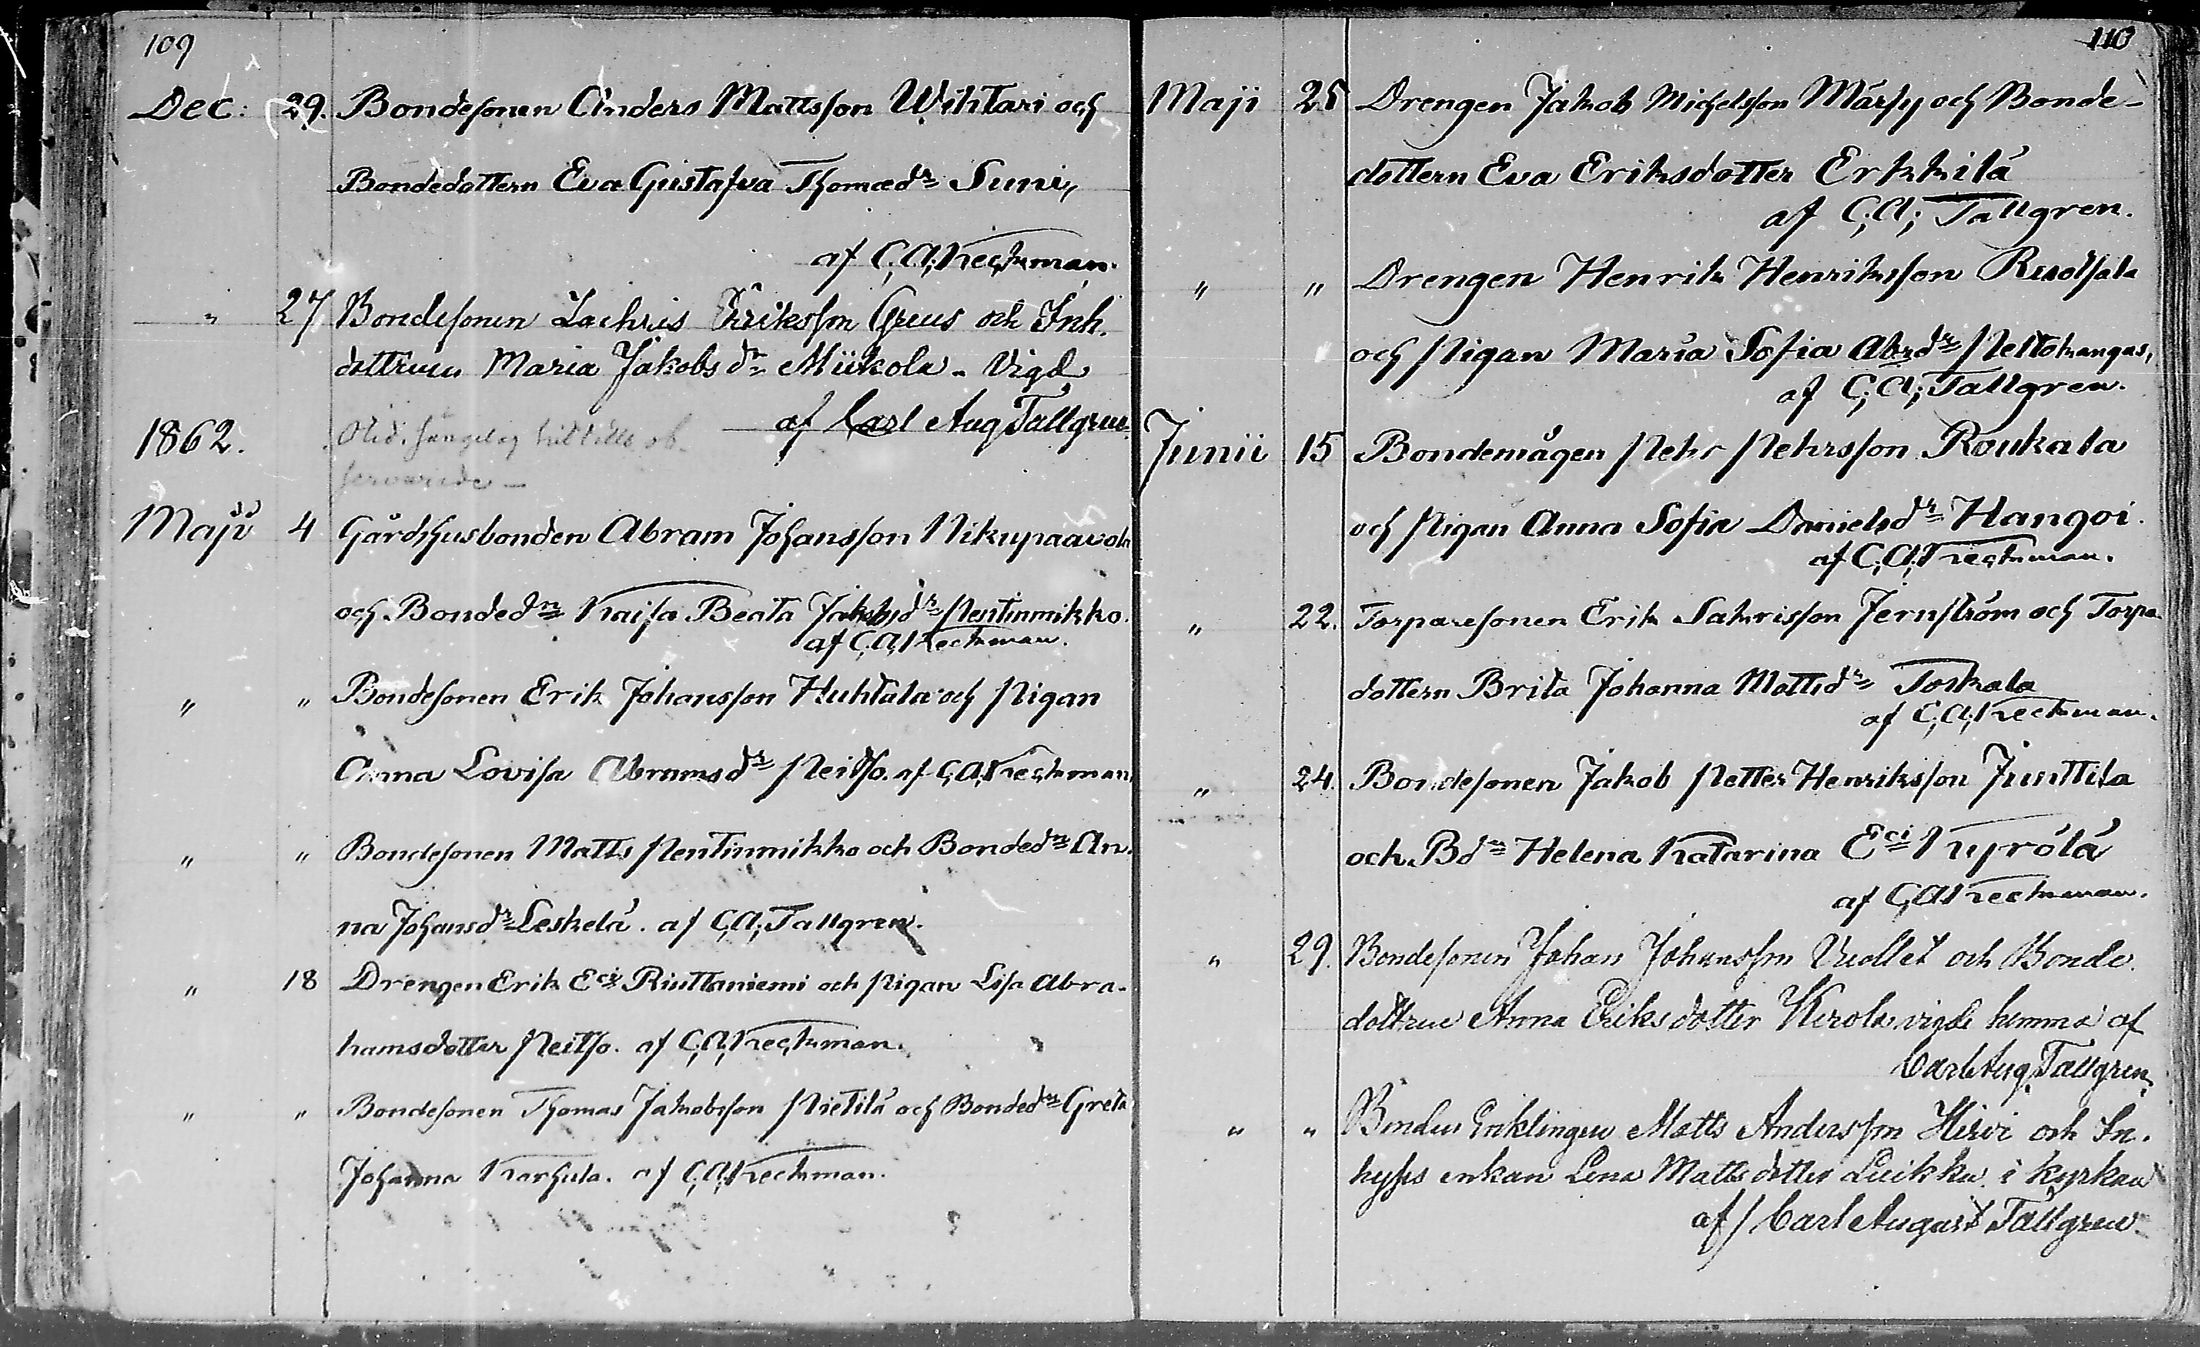 109
Dec: 29. Bondesonen Anders Mattsson Wihtari och
Bondedottern Eva Gustafva Thomædr Suni,
af C. A. Keckman.
" 27 Bondesonen Zachris Eriksson Greus och Inh.
dottren Maria Jakobs dr Miikola - Vigd
af Carl Aug Tallgren.
1862.
Maji 4 Gårdshusbonden Abram Johansson Nikupaavola
och Bondedn Kaisa Beata Jakobsdr Pentinmikko.
af C. A. Keckman.
" " Bondesonen Erik Johansson Huhtala och Pigan
Anna Lovisa Abramsdr Peitso. af C. A. Keckman
" " Bondesonen Matts Pentinmikko och Bondedn An-
na Johansdr Leskelä. af C. A. Tallgren.
" 18 Drengen Erik Eci Riuttaniemi och Pigan Lisa Abra-
hamsdotter Peitso. af C. A. Keckman.
" " Bondesonen Thomas Jakobsson Pietilä och Bondedn Greta
Johanna Karhula. af C. A. Keckman.
110
Maji 25 Drengen Jakob Michelsson Märsy och Bonde-
dottern Eva Eriksdotter Erkkilä
af C. A. Tallgren.
" " Drengen Henrik Henriksson Ruotsala
och Pigan Maria Sofia Abrdr Peltokangas,
af C. A. Tallgren.
Junii 15 Bondemågen Pehr Pehrsson Roukala
och Pigan Anna Sofia Danielsdr Hangoi.
af C. A. Keckman.
" 22. Torparesonen Erik Sakrisson Jernström och Torpa-
dottern Brita Johanna Mattsdr Torkala
af C. A. Keckman.
" 24. Bondesonen Jakob Petter Henriksson Junttila
och Bdn Helena Katarina Eci Kyrölä
af C. A. Keckman.
" 29. Bondesonen Johan Johansson Vuollet och Bonde.
dottren Anna Eriks dotter Kerola vigde hemma af
Carl Aug. Tallgren,
" " Bonden Enklingen Matts Andersson Hirvi och In.
hyses enkan Lena Matts dotter Luikku i kyrkan
af Carl August Tallgren